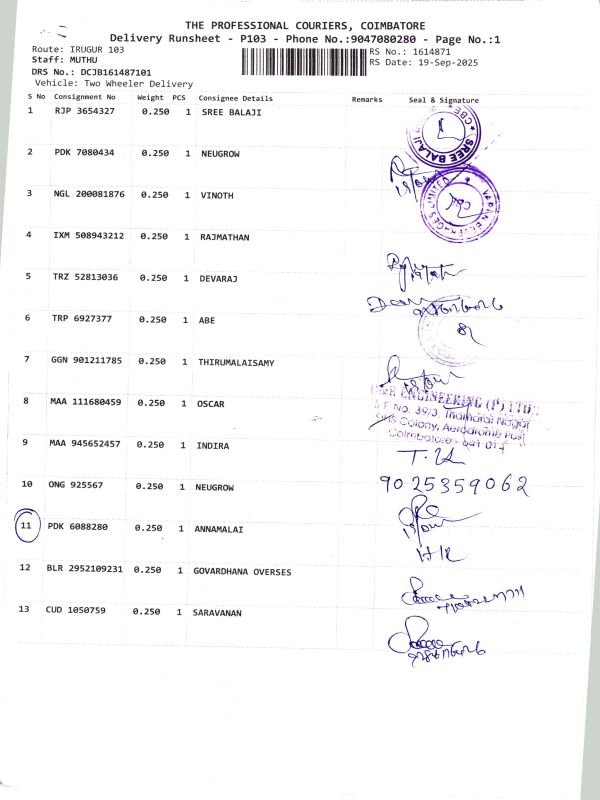 THE PROFESSIONAL COURIERS, COIMBATORE
Delivery Runsheet - P103 - Phone No.:9047080280 - Page No.:1
Route: IRUGUR 103
RS No.: 1614871
Staff: MUTHU
RS Date: 19-Sep-2025
DRS No.: DCJB161487101
Vehicle: Two Wheeler Delivery
S No Consignment No Weight PCS Consignee Details Remarks Seal & Signature
1 RJP 3654327 0.250 1 SREE BALAJI
SREE BALAJI
2 PDK 7080434 0.250 1 NEUGROW
3 NGL 200081876 0.250 1 VINOTH
4 IXM 508943212 0.250 1 RAJMATHAN
5 TRZ 52813036 0.250 1 DEVARAJ
6 TRP 6927377 0.250 1 ABE
7 GGN 901211785 0.250 1 THIRUMALAISAMY
8 MAA 111680459 0.250 1 OSCAR
ENGINEERING (P) LTD
S.F No. 39/3, Thamarai Nagar
Colony, Aerodrome Post
Coimbatore - 641 014
9 MAA 945652457 0.250 1 INDIRA
10 ONG 925567 0.250 1 NEUGROW
9025359062
11 PDK 6088280 0.250 1 ANNAMALAI
12 BLR 2952109231 0.250 1 GOVARDHANA OVERSES
13 CUD 1050759 0.250 1 SARAVANAN